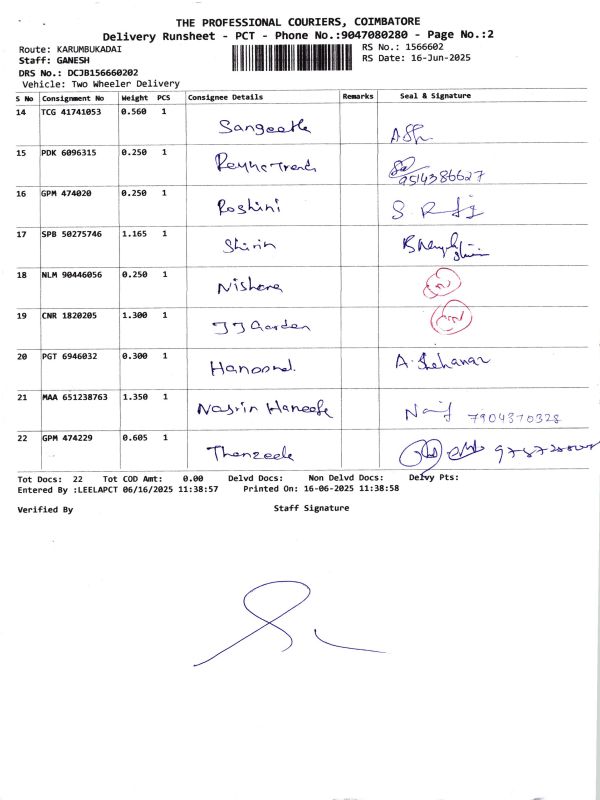 THE PROFESSIONAL COURIERS, COIMBATORE
Delivery Runsheet - PCT - Phone No.:9047080280 - Page No.:2
Route: KARUMBUKADAI RS No.: 1566602
Staff: GANESH RS Date: 16-Jun-2025
DRS No.: DCJB156660202
Vehicle: Two Wheeler Delivery
S No Consignment No Weight PCS Consignee Details Remarks Seal & Signature
14 TCG 41741053 0.560 1 Sangeetha
15 PDK 6096315 0.250 1 9514386627
16 GPM 474020 0.250 1 Roshini
17 SPB 50275746 1.165 1 Shirin
18 NLM 90446056 0.250 1 Nishara
19 CNR 1820205 1.300 1 JJ Garden
20 PGT 6946032 0.300 1 A. Shehanaz
21 MAA 651238763 1.350 1 Nasrin Haneefa 7904370328
22 GPM 474229 0.605 1
Tot Docs: 22 Tot COD Amt: 0.00 Delvd Docs: Non Delvd Docs: Delvy Pts:
Entered By :LEELAPCT 06/16/2025 11:38:57 Printed On: 16-06-2025 11:38:58
Verified By Staff Signature